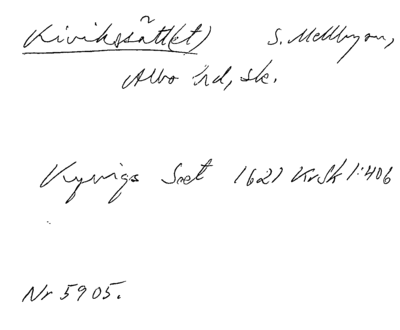 Kivikssätt(et) S. Mellbysn,
Albo hd, Sk.
Kyvigs Seet 1621 KrSk 1:406
Nr 5905.